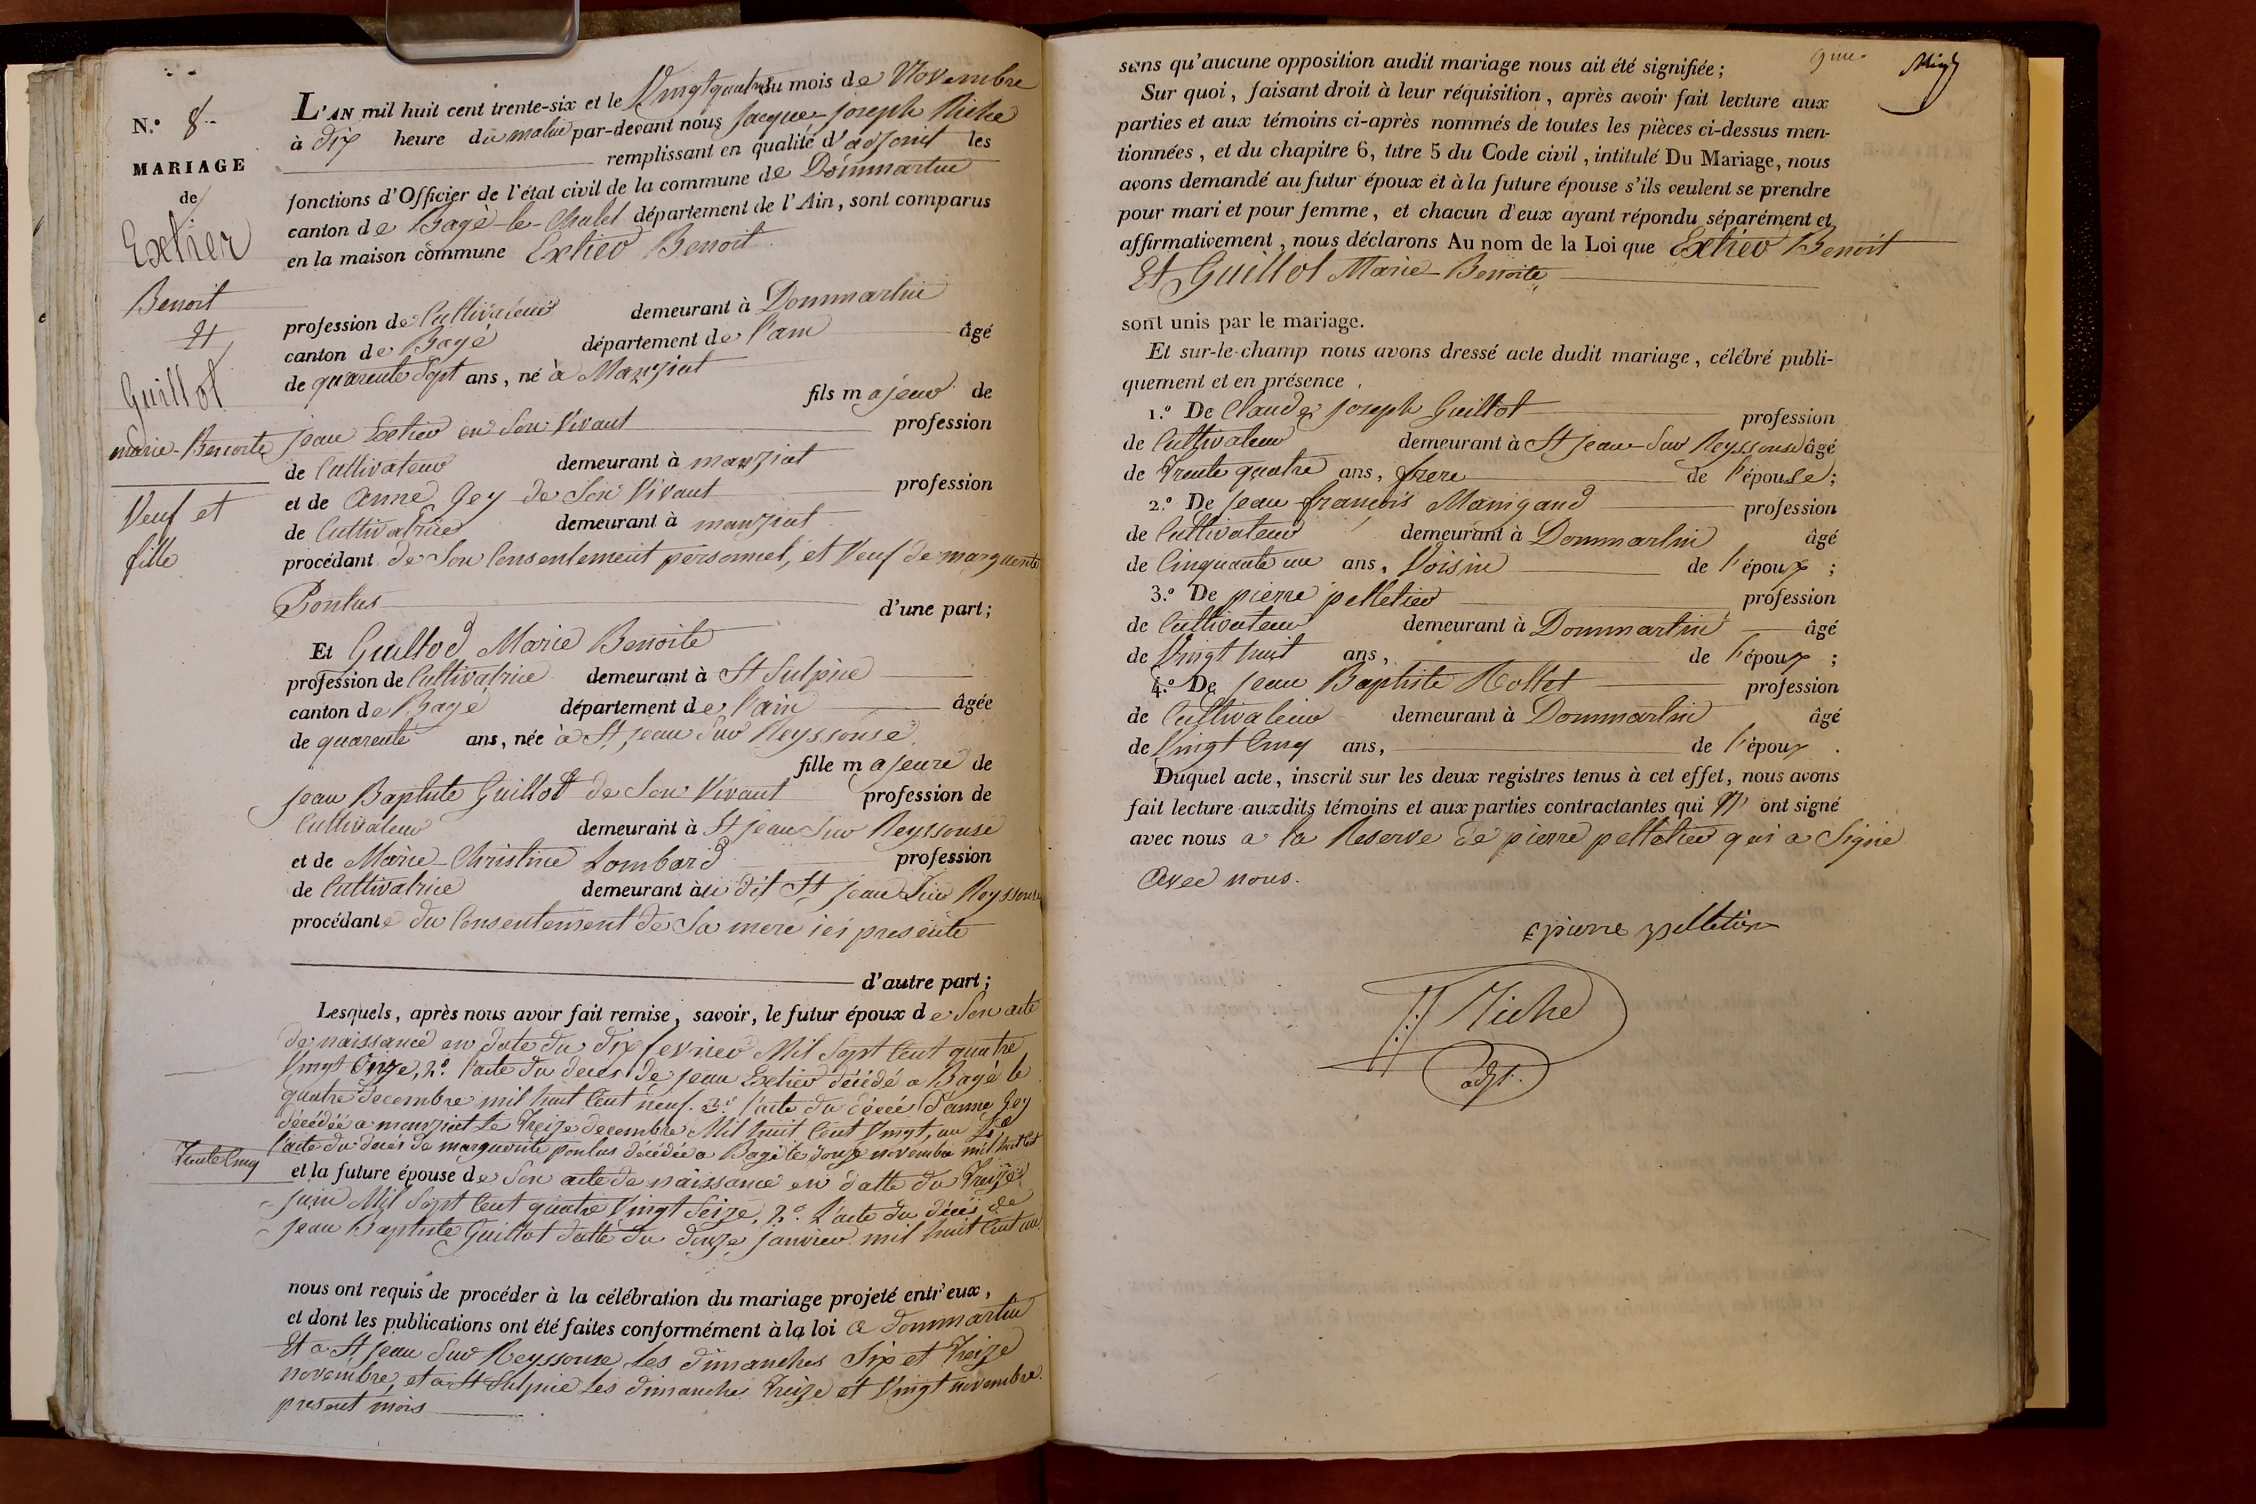 N.º 8
MARIAGE
de
Extier
Benoit
et
Guillot
marie-Benoite
Veuf et
fille
L'AN mil huit cent trente-six et le Vingt quatre du mois de Novembre
à dix heure du matin par-devant nous Jacque-Joseph Niche
remplissant en qualité d'adjoint les
fonctions d'Officier de l'état civil de la commune de Dommartin
canton de Bagé-le-Chatel département de l'Ain, sont comparus
en la maison commune Extier Benoit
profession de Cultivateur demeurant à Dommartin
canton de Bagé département de l'ain âgé
de quarente Sept ans, né à Manziat
fils majeur de
jean Extier en Son Vivant profession
de Cultivateur demeurant à manziat
et de Anne Gey de Son Vivant profession
de Cultivatrice demeurant à manziat
procédant de Son Consentement personnel, et Veuf de marguerite
Pontus d'une part;
Et Guillod Marie Benoite
profession de Cultivatrice demeurant à St Sulpice
canton de Bagé département de l'ain âgée
de quarente ans, née à St jean Sur Reyssouse
fille majeure de
Jean Baptiste Guillot de Son Vivant profession de
Cultivateur demeurant à St jean Sur Reyssouse
et de Marie-Christine Lombard profession
de Cultivatrice demeurant au dit St jean Sur Reyssouse
procédante du Consentement de Sa mere ici presente
d'autre part;
Lesquels, après nous avoir fait remise, savoir, le futur époux de Son acte
de naissance en date du dix fevrier Mil Sept Cent quatre
Vingt Onze, 2.º l'acte du deces de jean Extier décédé a Bagé le
quatre decembre mil huit Cent neuf. 3.º l'acte du décés d'anne Gey
décédée a manziat Le Treize decembre Mil huit Cent Vingt, un 4.º
l'acte du decés de marguerite pontus décédée a Bagé le douze novembre mil huit Cent
Trente Cinq
et la future épouse de Son acte de naissance en datte du Treize
juin Mil Sept Cent quatre Vingt Seize, 2.º L'acte du décés de
jean Baptiste Guillot datté du douze janvier mil huit Cent un
nous ont requis de procéder à la célébration du mariage projeté entr'eux,
et dont les publications ont été faites conformément à la loi a dommartin
Et a St jean Sur Reyssouse Les dimanches Six et Treize
novembre, et a St Sulpice Les dimanche Treize et Vingt novembre
present mois
9me
sans qu'aucune opposition audit mariage nous ait été signifiée;
Sur quoi, faisant droit à leur réquisition, après avoir fait lecture aux
parties et aux témoins ci-après nommés de toutes les pièces ci-dessus men-
tionnées, et du chapitre 6, titre 5 du Code civil, intitulé Du Mariage, nous
avons demandé au futur époux et à la future épouse s'ils veulent se prendre
pour mari et pour femme, et chacun d'eux ayant répondu séparément et
affirmativement, nous déclarons Au nom de la Loi que Extier Benoit
Et Guillot Marie-Benoite
sont unis par le mariage.
Et sur-le-champ nous avons dressé acte dudit mariage, célébré publi-
quement et en présence,
1.º De Claude joseph Guillot profession
de Cultivateur demeurant à St jean-Sur Reyssouse âgé
de Trente quatre ans, frere de l'épouse;
2.º De Jean françois Manigand profession
de Cultivateur demeurant à Dommartin âgé
de Cinquante un ans, Voisin de l'époux;
3.º De pierre pelletier profession
de Cultivateur demeurant à Dommartin âgé
de Vingt huit ans, de l'époux;
4.º De Jean Baptiste Rollet profession
de Cultivateur demeurant à Dommartin âgé
de Vingt Cinq ans, de l'époux.
Duquel acte, inscrit sur les deux registres tenus à cet effet, nous avons
fait lecture auxdits témoins et aux parties contractantes qui n' ont signé
avec nous a la Reserve de pierre pelletier qui a Signé
avec nous.
pierre pelletier
JJ Niche
adjt.